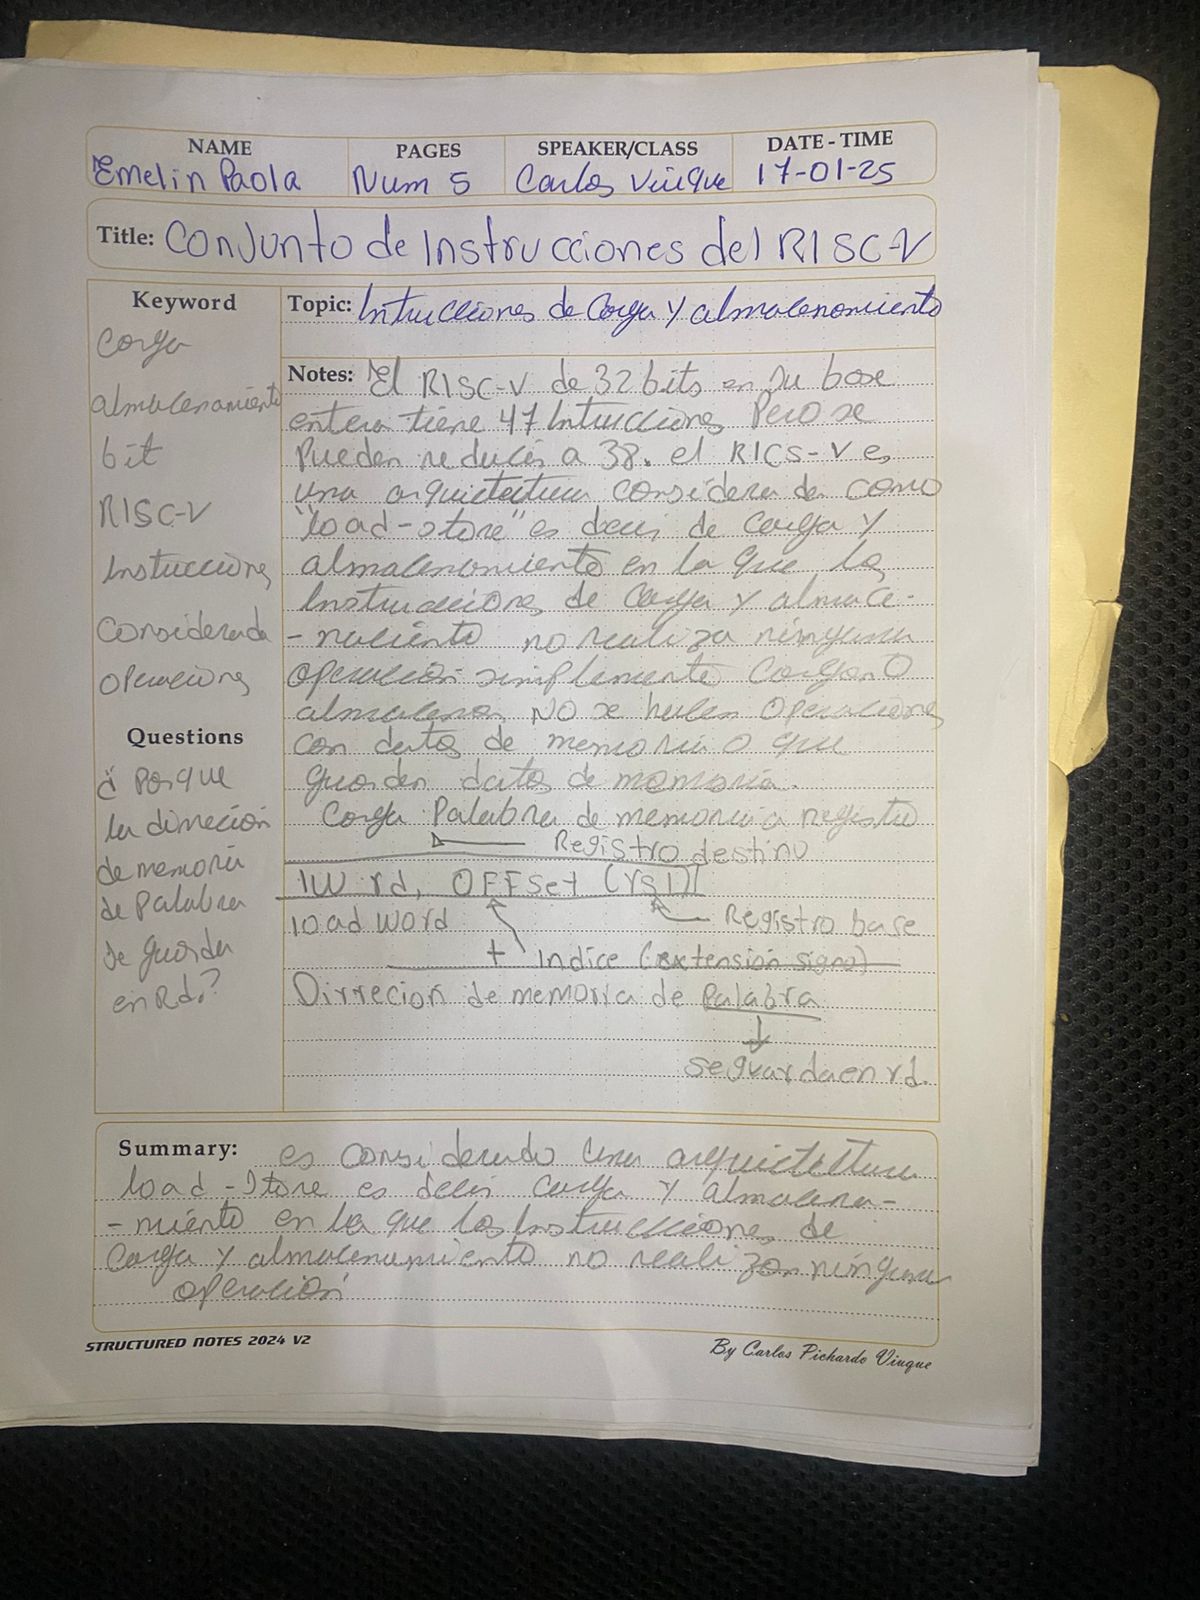 NAME
PAGES
SPEAKER/CLASS
DATE - TIME
Emelin Paola
Num 5
Carlos Viuque
17-01-25
Title: Conjunto de Instrucciones del RISC-V
Keyword
Carga
almacenamiento
bit
RISC-V
Instucciones
Considerada
operaciones
Questions
¿ Porque
la dirreción
de memoria
de palabra
se guarda
en Rd.?
Topic: Intrucciones de Carga y almacenamiento
Notes: El RISC-V de 32 bits en su base
entera tiene 47 Intrucciones Pero se
Pueden reducir a 38. el RICS-V es
una arquitectura considera da como
"load-store" es decir de carga y
almacenamiento en la que las
Instrucciones de carga y almace-
-namiento no realiza ninguna
operación simplemente Cargan O
almacenan NO se hacen Operaciones
con datos de memoria o que
guarden datos de memoria.
Carga Palabra de memoria a registro
Registro destino
lW rd, OFFset (rs1)
load word
Registro base
+ Indice (extensión signo)
Dirrecion de memoria de Palabra
se guarda en rd.
Summary: es considerado una arquictectura
load-Store es decir carga y almacena-
-miento en la que las Instrucciones de
Carga y almacenamiento no realizan ninguna
operación
STRUCTURED NOTES 2024 V2
By Carlos Pichardo Viuque